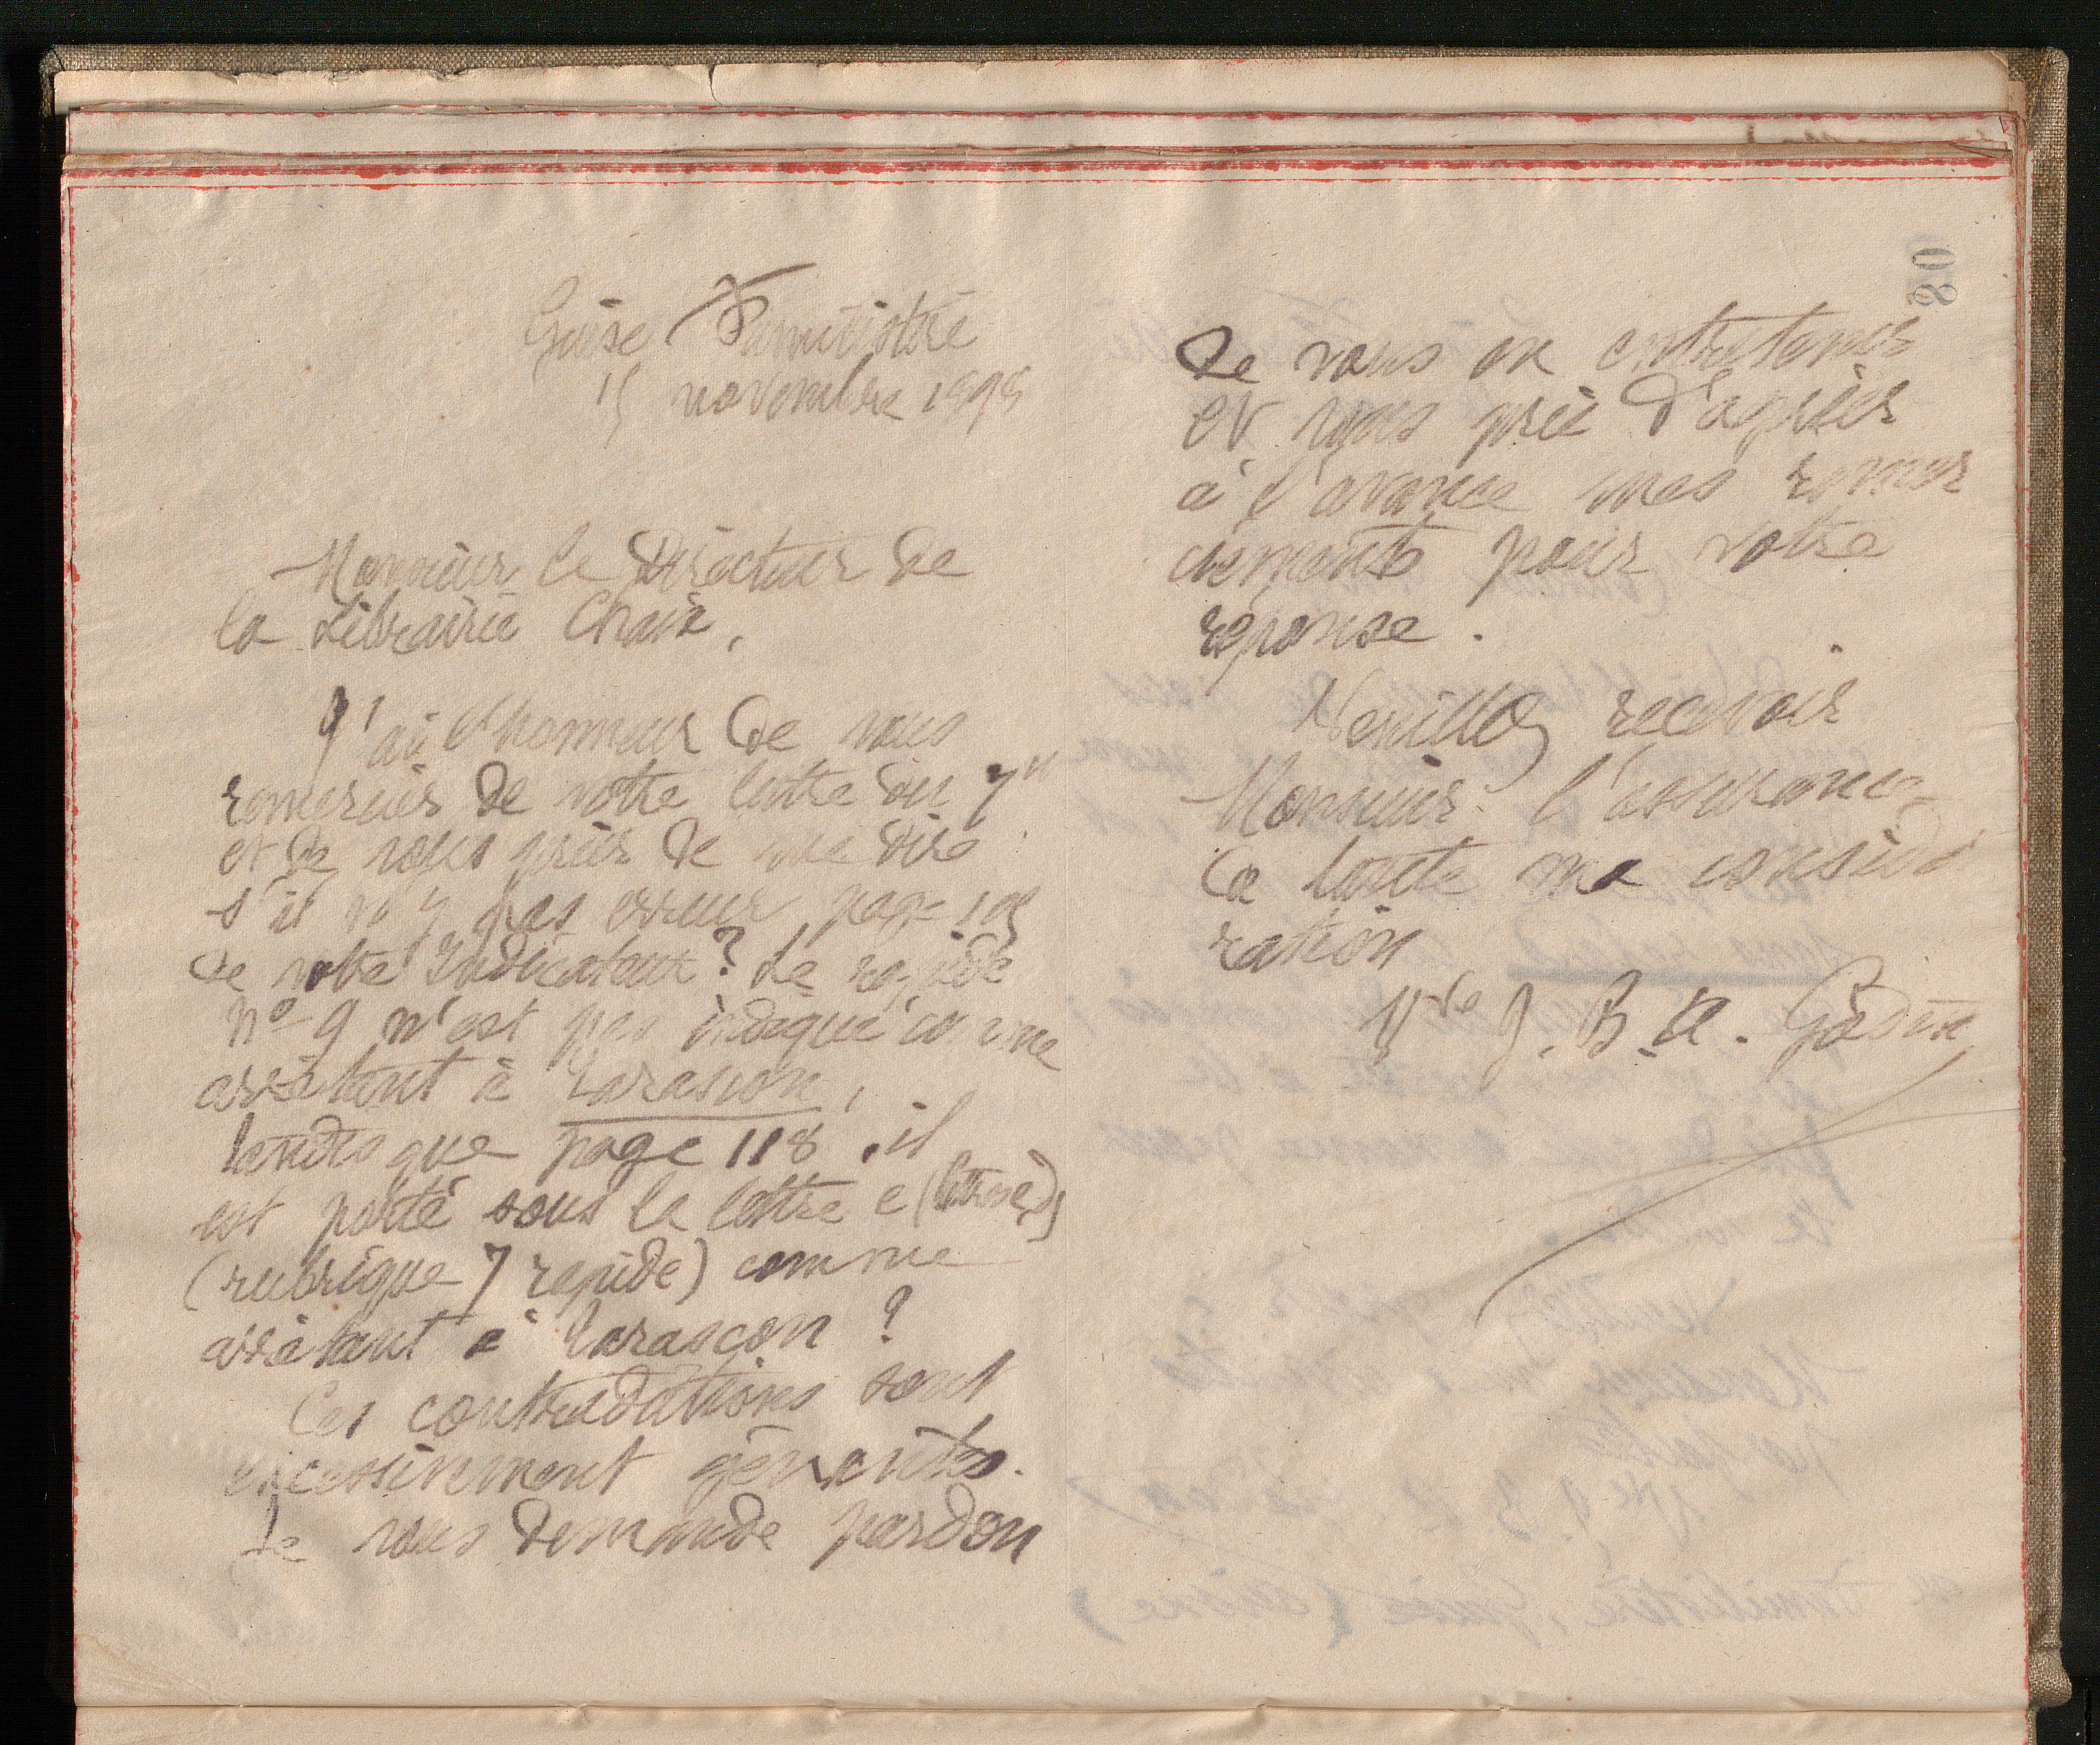 80
Guise Familistère
15 novembre 1898
Monsieur le Directeur de
la Librairie Chaix,
J'ai l'honneur de vous
remercier de votre lettre du 7 
et de vous prier de me dire
s'il n'y pas erreur page 105
de votre Indicateur ? Le rapide
n° 9 n'est pas indiqué comme
arrêtant à Tarascon,
tandis que page 118, il
est porté sous la lettre e
(rubrique 7 rapide) comme
arrêtant à Tarascon ?
Ces contradictions sont
excessivement gênantes.
Je vous demande pardon
de vous en entretenir
et vous prie d'agréer
à l'avance mes remer
ciements pour votre
réponse.
Veuillez recevoir
Monsieur l'assurance
de toute ma considé
ration
Vve J. B. A. Godin